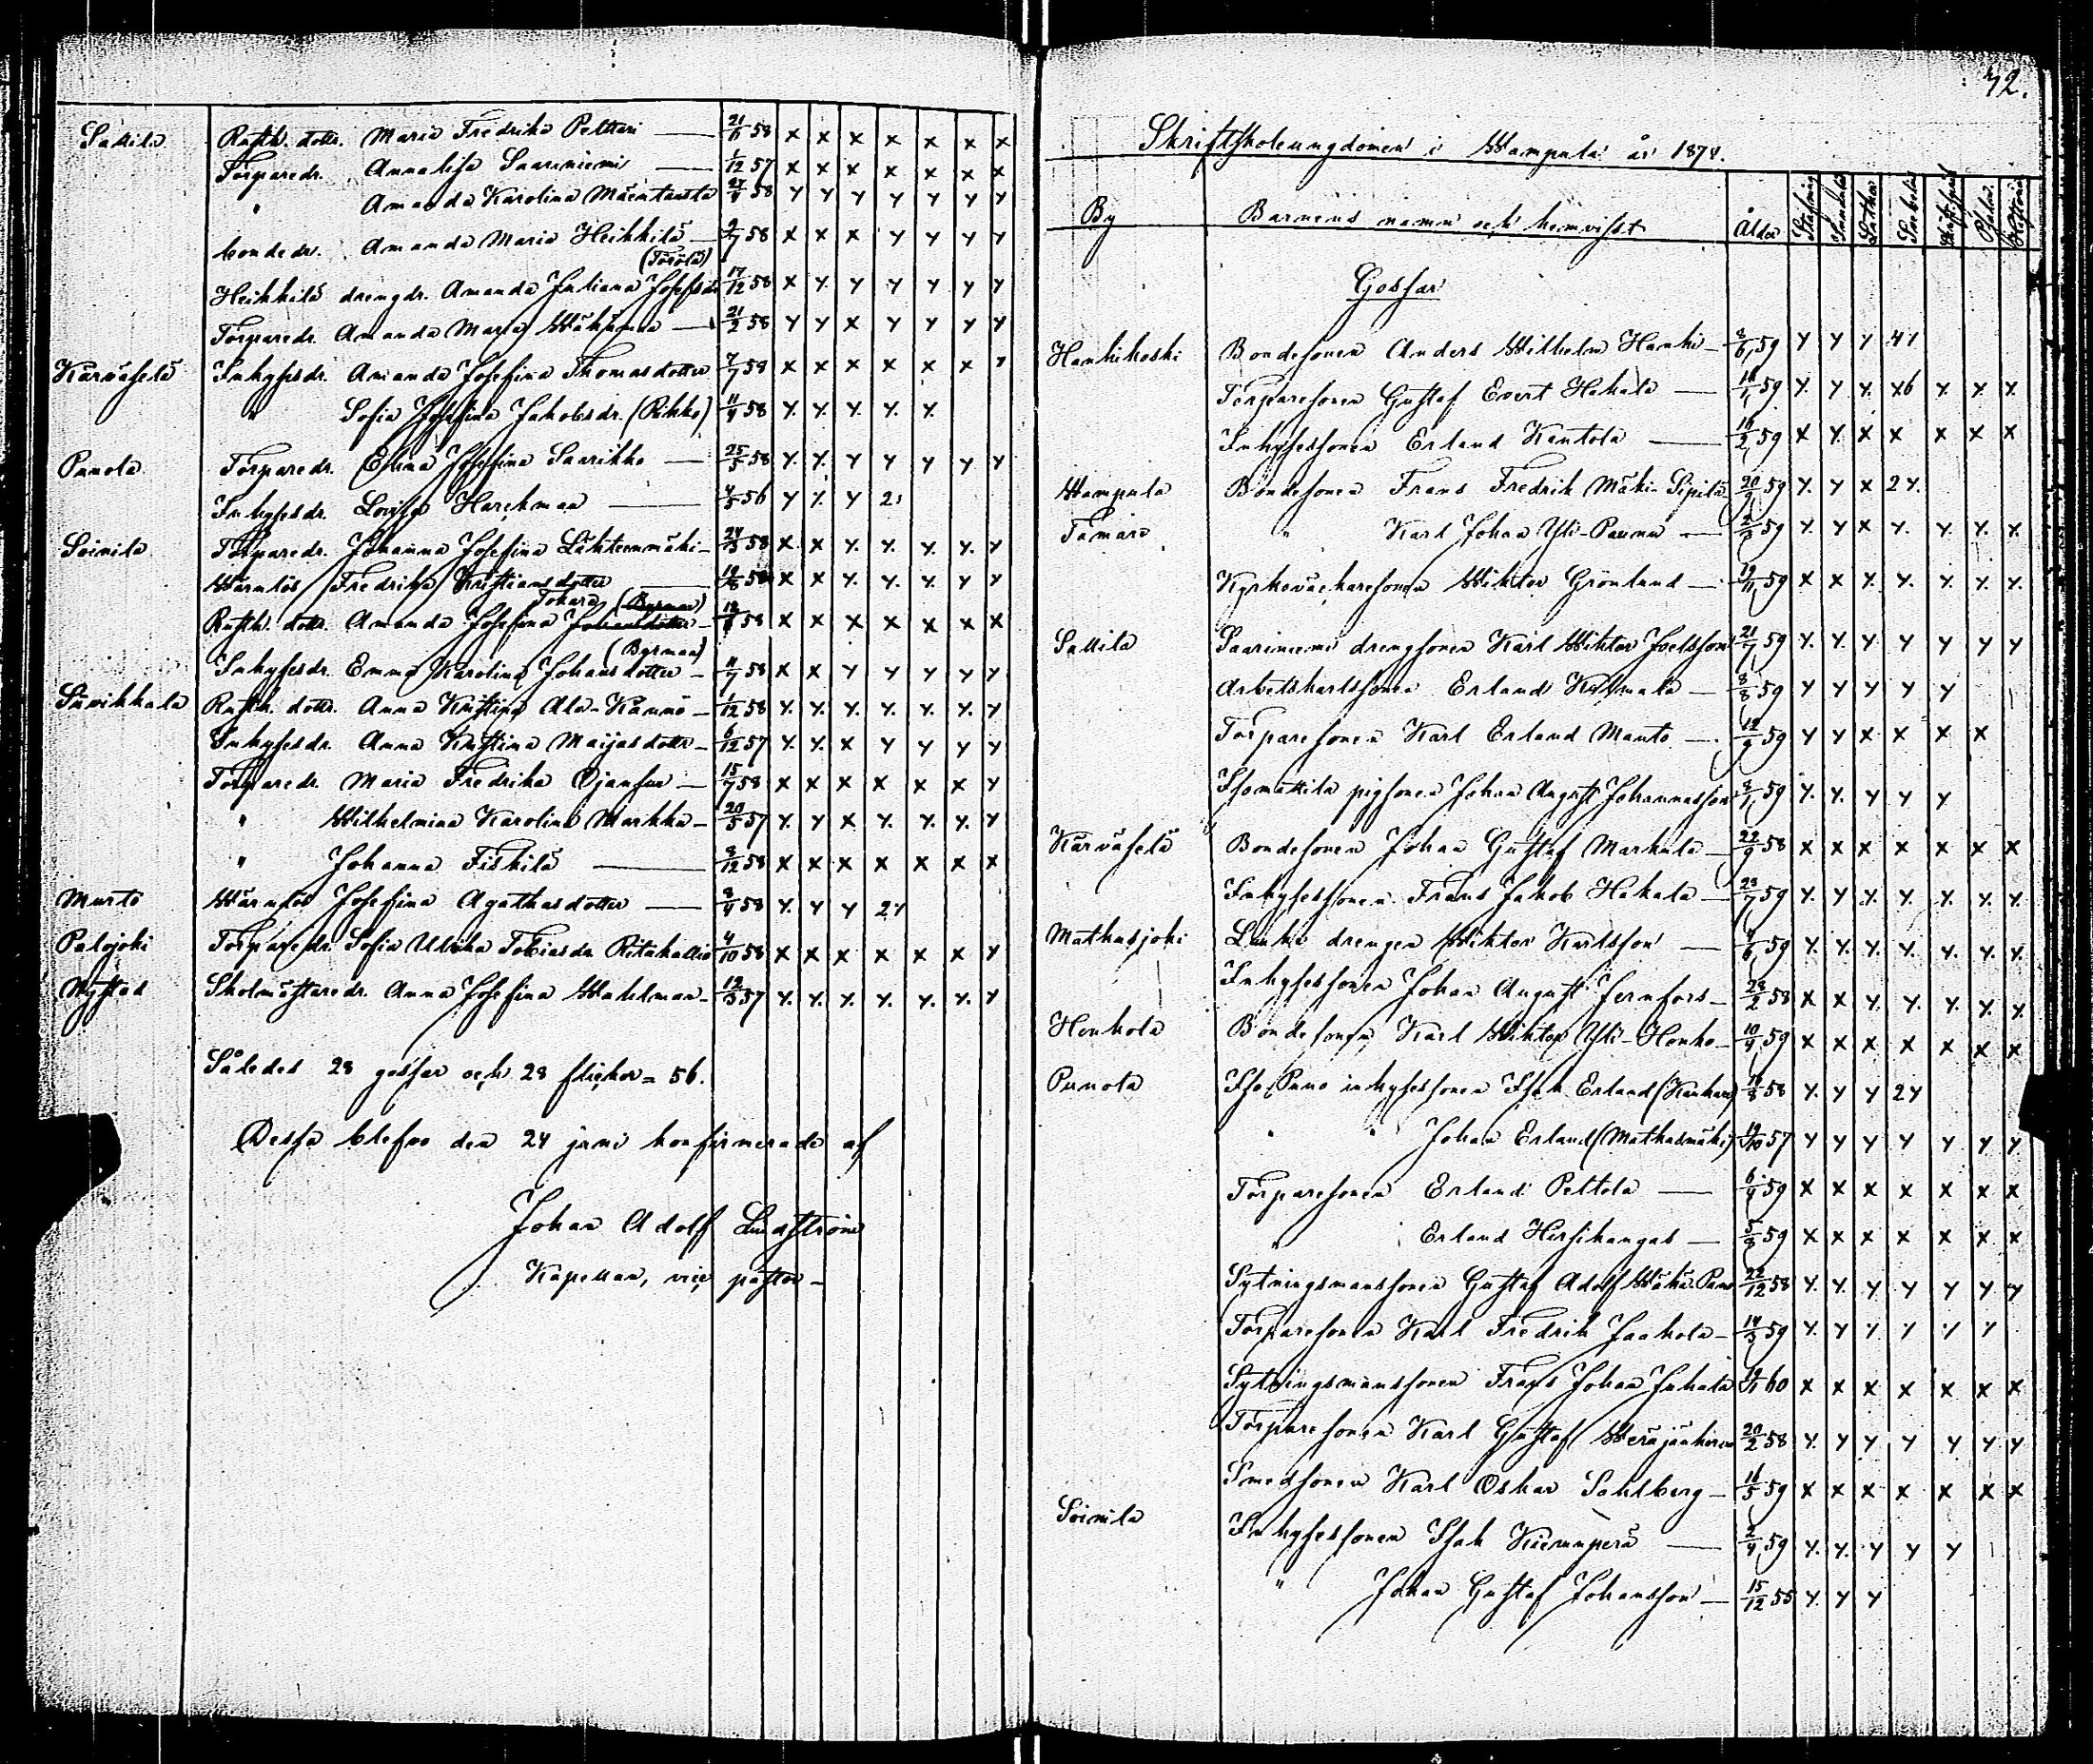 Sallila Rusth. dottr. Maria Fredrika Peltari — 21/6 58 x x x x x x x
Torparedr. Annalisa Saariniemi — 1/12 57 x x x x x x x
" Amanda Karolina Mäentausta 27/4 58 y y y y y y y
bondedr. Amanda Maria Heikkilä — 2/7 58 x x x y y y y
(Törölä)
Heikkilä drengdr. Amanda Juliana Josefsdr 17/12 58 x y y y y y y
Torparedr. Amanda Maria — 21/2 58 y y x y y y y
Kärväselä Inhysesdr. Amanda Josefina Thomasdotter 7/7 58 x x x x x x y
" Sofia Josefina Jakobsdr. (Rikko) 11/4 58 y y y y y
Punola Torparedr. Elina Josefina Saarikko — 25/5 58 y y y y y y y
Inhysesdr. Lovisa Harckman — 4/5 56 y y y 2
Soinila Torparedr. Johanna Josefina Lähteenmäki — 24/3 58 x x y y y y y
Wärnlös Fredrika Kristiansdotter — 19/8 58 x x y y y y y
Tokara (Byrman)
Rusth. dottr. Amanda Josefina Johansdotter — 58 x x x x x x x
(Byrman)
Inhysesdr. Emma Karolina Johansdotter — 11/7 58 x x y y y y y
Suvikkala Rusth. dottr. Anna Kristina Ala-Kauno — 1/12 58 y y y y y y y
Inhysesdr. Anna Kristina Maijasdotter — 6/12 57 y y x y y y y
Torparedr. Maria Fredrika Ojansuu — 15/7 58 x x x x x x y
" Wilhelmina Karolina Markka — 20/5 57 y y x y y y y
" Johanna Fiskilä — 8/12 58 x x x x x x x
Murto Wärnlös Josefina Agathasdotter — 2/4 58 y y y 2 y
Palojoki Torparedr. Sofia Ulrika Tobiasdr Ritakallio 4/10 58 x x x x x x y
Nystad Skolmästaredr. Anna Josefina Wahlman — 12/3 57 y y y y y y y
Således 28 gossar och 28 flickor = 56.
Dessa blefvo den 24 juni konfirmerade af
Johan Adolf Lindström
Kapellan, vice pastor —
72.
Skriftskoleungdomen i Wampula år 1874.
By Barnens namn och hemvist Ålder
Gossar
Hankikoski Bondesonen Anders Wilhelm Hanki — 8/6 59 y y y 4 y
Torparesonen Gustaf Evert Hakala — 18/1 59 y y y x6 y y y
Inhysessonen Erland Kantola — 16/2 59 x y x x x x x
Wampula Bondesonen Frans Fredrik Mäki-Sipilä 20/2 59 y y x 2 y
Tamare " Karl Johan Yli-Paunu — 2/3 59 y y x y y y y
Kyrkoväckaresonen Wiktor Grönlund — 19/11 59 x x y y y y y
Sallila Saariniemi drengsonen Karl Wiktor Joelsson 21/7 59 y y y y y y y
Arbetskarlssonen Erland Kulmala — 8/8 59 y y y y y
Torparesonen Karl Erland Manto — 12/9 59 y y x x x x
Isomattila pigsonen Johan August Johannasson 8/1 59 y y y y y
Kärväselä Bondesonen Johan Gustaf Markula — 22/9 58 x x x x x x x
Inhysessonen Frans Jakob Hakala — 23/7 59 y y y y y y y
Mathusjoki drengen Wiktor Karlsson — 59 y y y y y y y
Inhysessonen Johan August Jernfors — 28/2 58 x x y y y y y
Honkola Bondesonen Karl Wiktor Yli-Honko — 10/4 59 x x x x x x x
Punola Iso Puno inhysessonen Isak Erland (Kankare) 18/8 58 y y y 2 y
" " Johan Erland (Mathasmäki) 19/10 57 y y y y y y y
Torparesonen Erland Peltola — 6/4 59 x x x x x x x
" Erland Hirsikangas — 5/8 59 x x x x x x x
Sytningsmanssonen Gustaf Adolf Wähä-Puno 22/12 58 y y y y y y y
Torparesonen Karl Fredrik Jaakola — 14/3 59 y y y y y y
Sytningsmanssonen Frans Johan Juhala 60 x x x x x x x
Torparesonen Karl Gustaf Weräjänkorva 20/2 58 y y y y y y y
Smedsonen Karl Oskar Sahlberg — 16/5 59 x x x x x x x
Soinila Inhysessonen Isak Kiemunperä — 2/4 59 y y y y y
" Johan Gustaf Johansson — 15/12 55 y y y